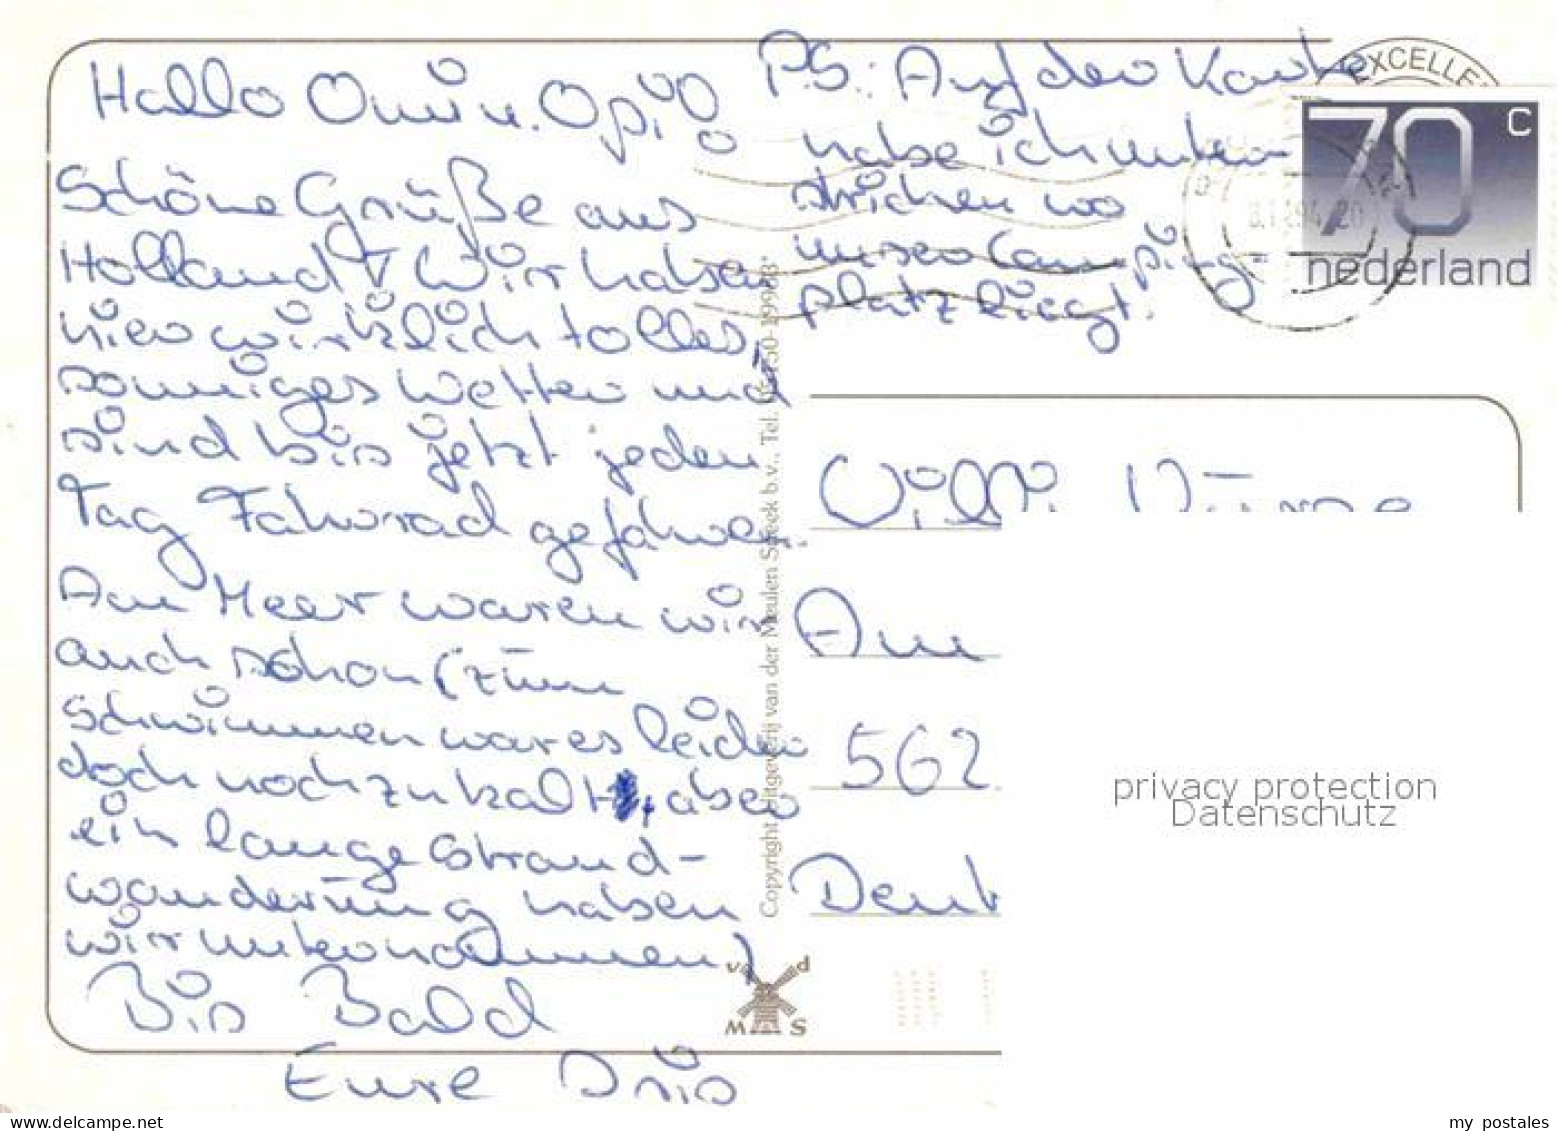 Hallo Omi u. Opi!
Schöne Grüße aus
Holland! Wir haben
hier wirklich tolles,
sonniges Wetter und
sind bis jetzt jeden
Tag Fahrrad gefahren.
Am Meer waren wir
auch schon (zum
Schwimmen war es leider
doch noch zu kalt, aber
ein lange Strand-
wanderung haben
wir unternommen)
Bis Bald
Eure Iris
PS.: Auf der Karte
habe ich unter-
strichen wo
unser Camping-
platz liegt.
EXCELLE
70 C
nederland
Copyright Uitgeverij van der Meulen Sneek b.v., Tel.
Willi
Am
562
v d
M S
privacy protection
Datenschutz
my postales